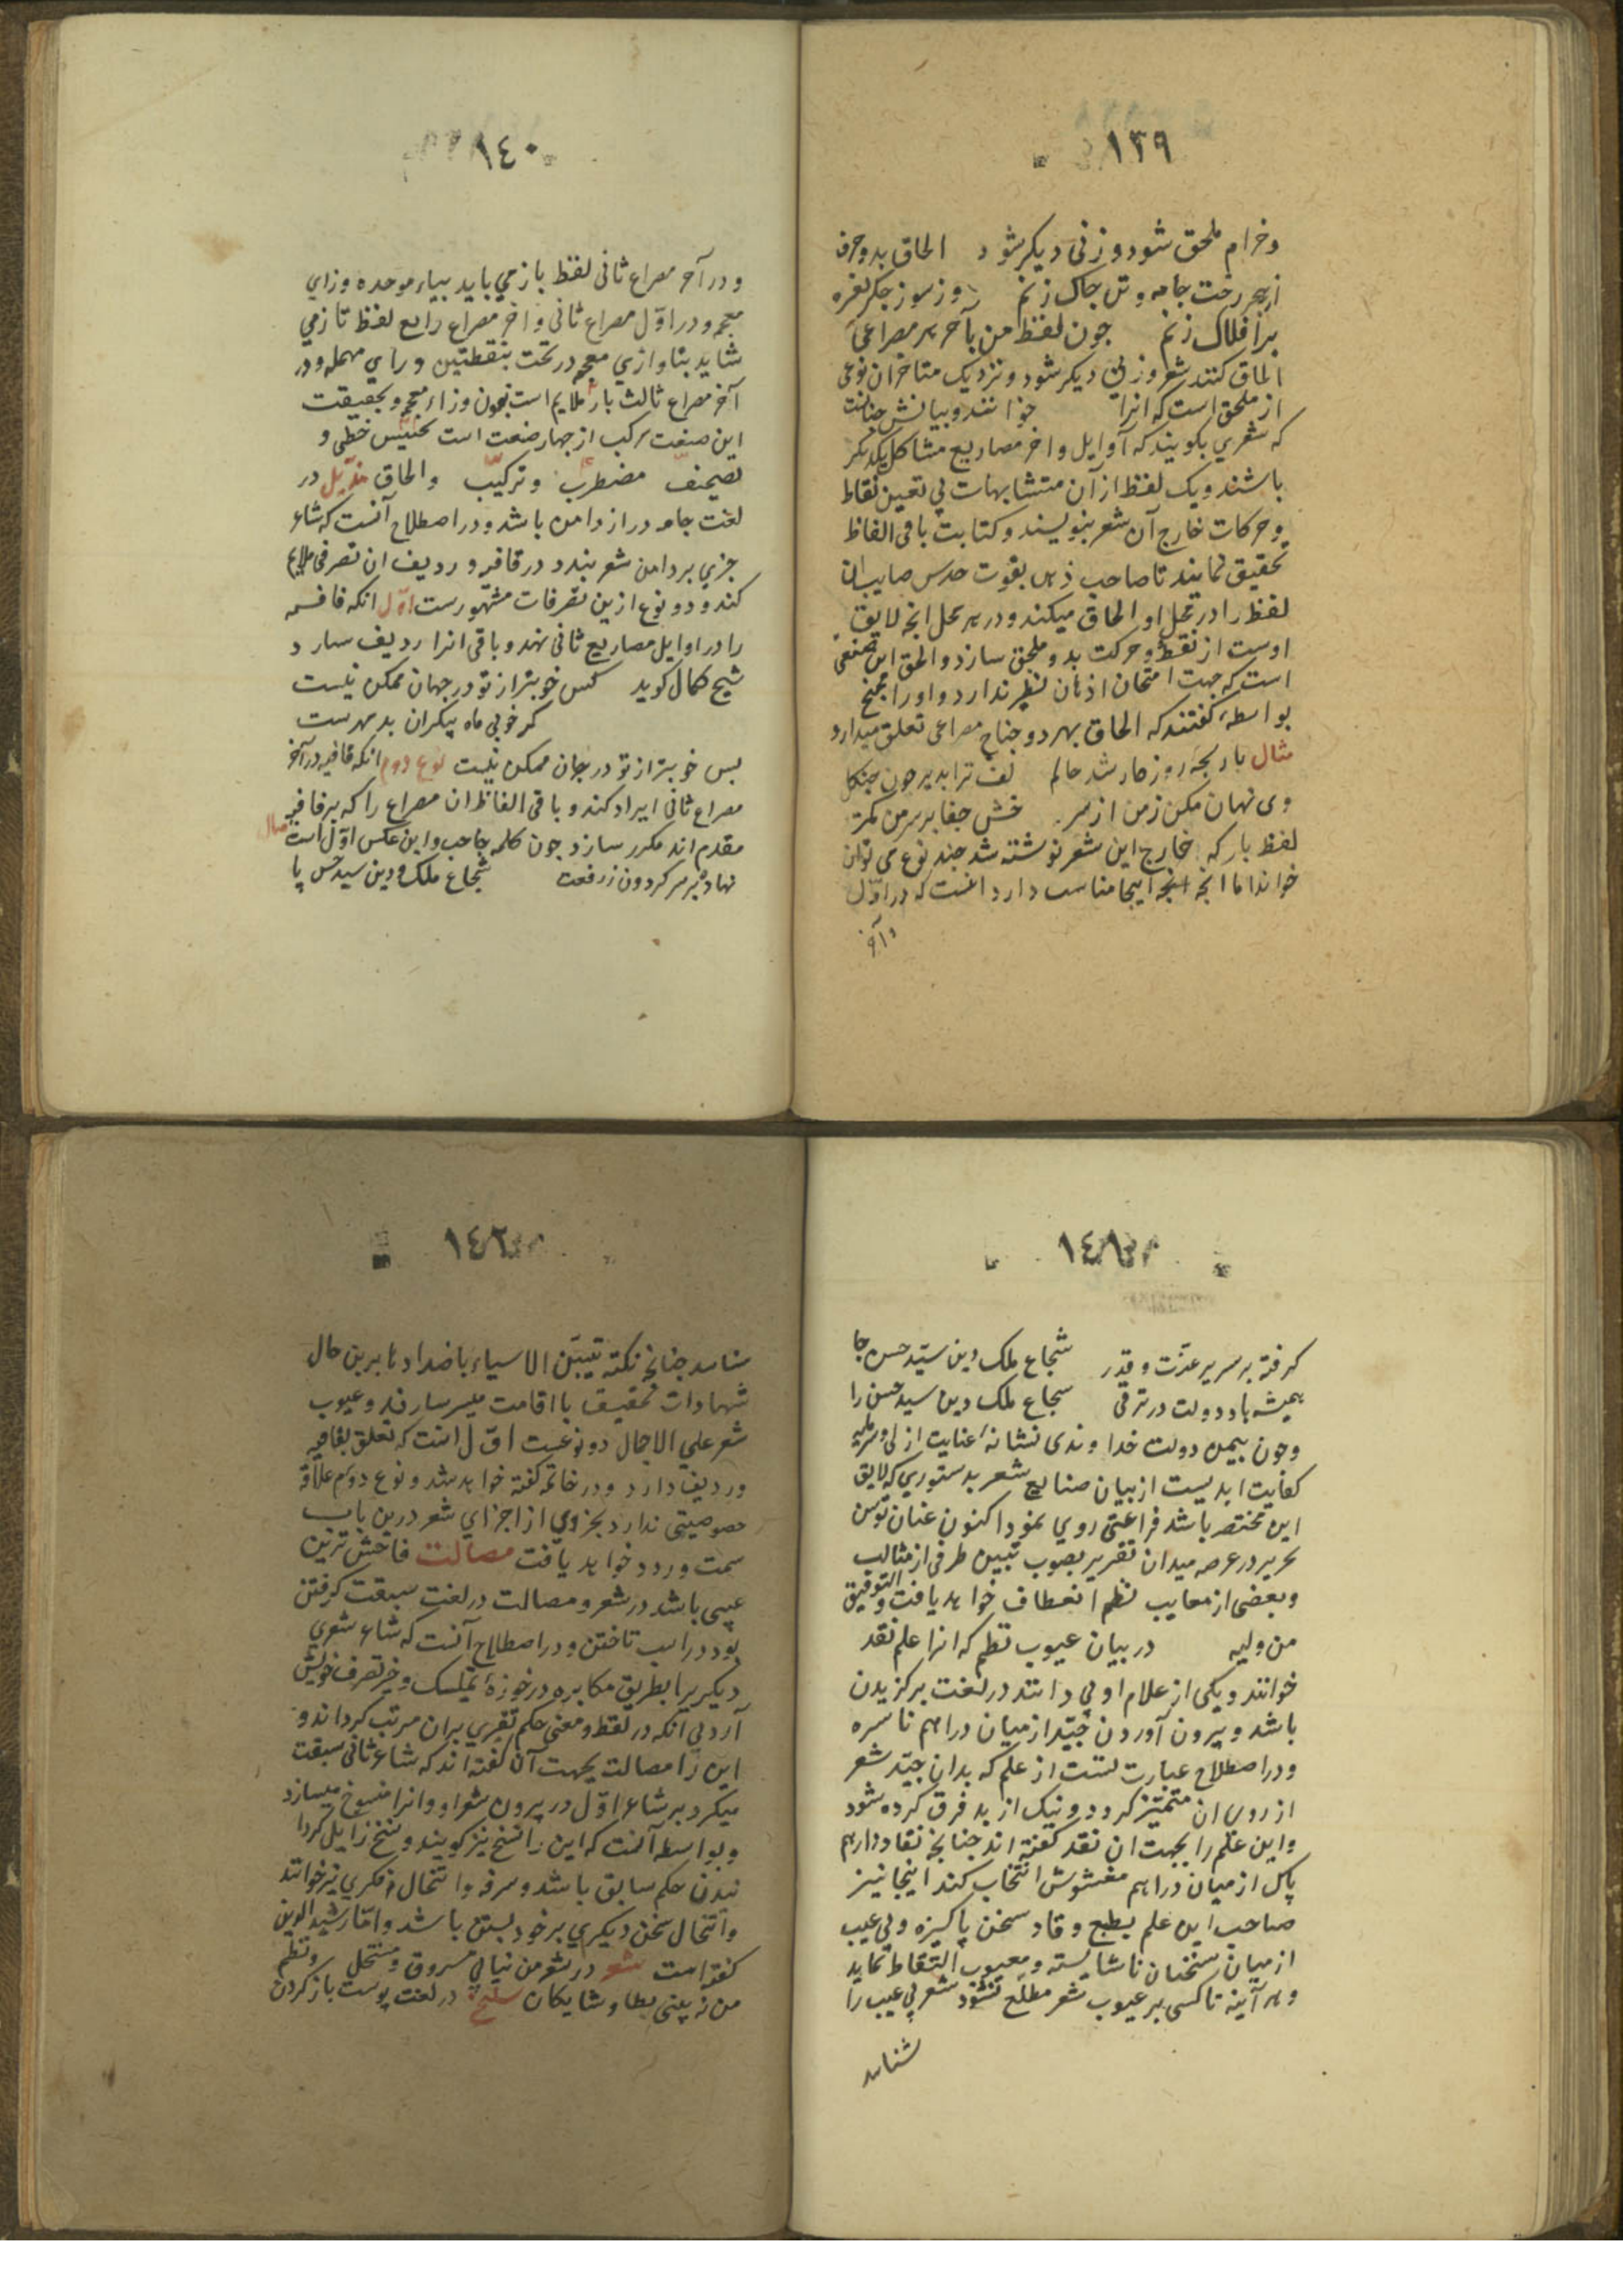 ١٣٩
وخرام ملحق شود وزنی دیکر شود الحاق بدو حرف
از هجر رخت جامه و تن چاک زنم وز سوز جکر نعره
بر افلاک زنم جون لفظ من بآخر هر مصراعی
الحاق کنند شعر وزنی دیکر شود و نزدیک متاخران نوعی
از ملحق است که انرا خوانند و بیانش چنانست
که شعری بکویند که اوایل و اخر مصاریع مشاکل یکدیکر
باشند و یک لفظ از آن متشابهات بی تعین نقاط
و حرکات خارج آن شعر بنویسند و کتابت باقی الفاظ
تحقیق نمایند تا صاحب ذهن بقوت حدس صایب ان
لفظ را در محل او الحاق میکند و در هر محل انچه لایق
اوست از نقط و حرکت بدو ملحق سازد و الحق این صنعی
است که جهت امتحان اذهان نظیر ندارد و او را مجنح
بواسطه کفتند که الحاق بهر دو جناح مصراعی تعلق میدارد
مثال
وی نهان مکن ز من از سر جفا بر سر من
لفظ بار که خارج این شعر نوشته شد چند نوع می توان
خواند اما انچه اینجا مناسب دارد انست که در اول
و آخر
١٤٠
و در آخر مصراع ثانی لفظ بازمی باید بباء موحده و زای
معجمه و در اول مصراع ثانی و اخر مصراع رابع لفظ تازمی
شاید بتا و ازی معجمه در تحت بنقطتین و رای مهمله و در
آخر مصراع ثالث بار ملایم است بنون و زاء معجمه و بحقیقت
این صنعت مرکب از چهار صنعت است تجنیس خطی و
تصحیف مضطرب و ترکیب والحاق مذیل در
لغت جامه دراز دامن باشد و در اصطلاح آنست که شاعر
چیزی بر دامن شعر بندد در قافیه و ردیف ان تصرفی ملایم
کند و دو نوع ازین تصرفات مشهورست اول انکه قافیه
را در اوایل مصاریع ثانی نهد و باقی انرا ردیف سازد
شیخ کمال کوید کس خوبتر از تو در جهان ممکن نیست
کر خوبی ماه پیکران بدمهرست
پس خوبتر از تو در جهان ممکن نیست نوع دوم انکه قافیه در آخر
مصراع ثانی ایراد کند و باقی الفاظ ان مصراع را که بر قافیه
مقدم اند مکرر سازد چون کلمه حاجب و این عکس اول است مثال
نهاده بر سر کردون ز رفعت شجاع ملک و دین سید حسن پا
١٤١
کرفته بر سریر عزت و قدر شجاع ملک دین سید حسن جا
همیشه باد دولت در ترقی شجاع ملک دین سید حسن را
و چون بیمن دولت خداوندی نشانه عنایت ازلی و سرمایه
کفایت ابدیست از بیان صنایع شعر بدستوری که لایق
این مختصر باشد فراغتی روی نمود اکنون عنان توسن
تحریر در عرصه میدان تقریر بصوب تبیین طرفی از مثالب
و بعضی از معایب نظم انعطاف خواهد یافت و التوفیق
من ولیه در بیان عیوب نظم که انرا علم نقد
خوانند و یکی از علام او بی دانند در لغت برکزیدن
باشد و بیرون آوردن جید از میان دراهم ناسره
و در اصطلاح عبارت تست از علم که بدان جید شعر
از روی ان متمیز کردد و نیک از بد فرق کرده شود
و این علم را بجهت ان نقد کفته اند چنانچه نقاد دارهم
پاک از میان دراهم مغشوش انتخاب کند اینجا نیز
صاحب این علم بطبع وقاد سخن پاکیزه و بی عیب
از میان سخنان ناشایسته و معیوب التقاط نماید
و هر آینه تا کسی بر عیوب شعر مطلع نشود شعر بی عیب را
شناسد
١٤٢
شناسد چنانچه نکته تتبین الاسیاء باضدادها برین حال
شهادات تحقیق با اقامت میرساند و عیوب
شعر علی الاجمال دو نوعیست اول انست که تعلق بقافیه
و ردیف دارد و در خاتمه کفته خواهد شد و نوع دوم علاقه
خصوصیتی ندارد بجزوی از اجزای شعر درین باب
سمت ورود خواهد یافت مصالت فاحش ترین
عیبی باشد در شعر و مصالت در لغت سبقت کرفتن
بود در اسب تاختن و در اصطلاح آنست که شاعر شعری
دیکریرا بطریق مکابره در حوزه تملک و خیر تصرف خویش
آرد بی انکه در لفظ و معنی حکم تغیری بران مرتب کرداند و
این را مصالت بجهت آن کفته اند که شاعر ثانی سبقت
میکرد بر شاعر اول در بیرون شعر او و انرا منسوخ میسازد
و بواسطه آنست که این را نسخ نیز کویند و نسخ زایل کردا
نیدن حکم سابق باشد و سرقه و انتحال فکری نیز خوانند
و انتحال سخن دیکری بر خود بستن باشد و اما رشید الدین
کفته است شعر در شعر من نیابی مسروق و منتحل و نظم
من نه بینی یطا و شایکان سلخ در لغت پوست باز کردن